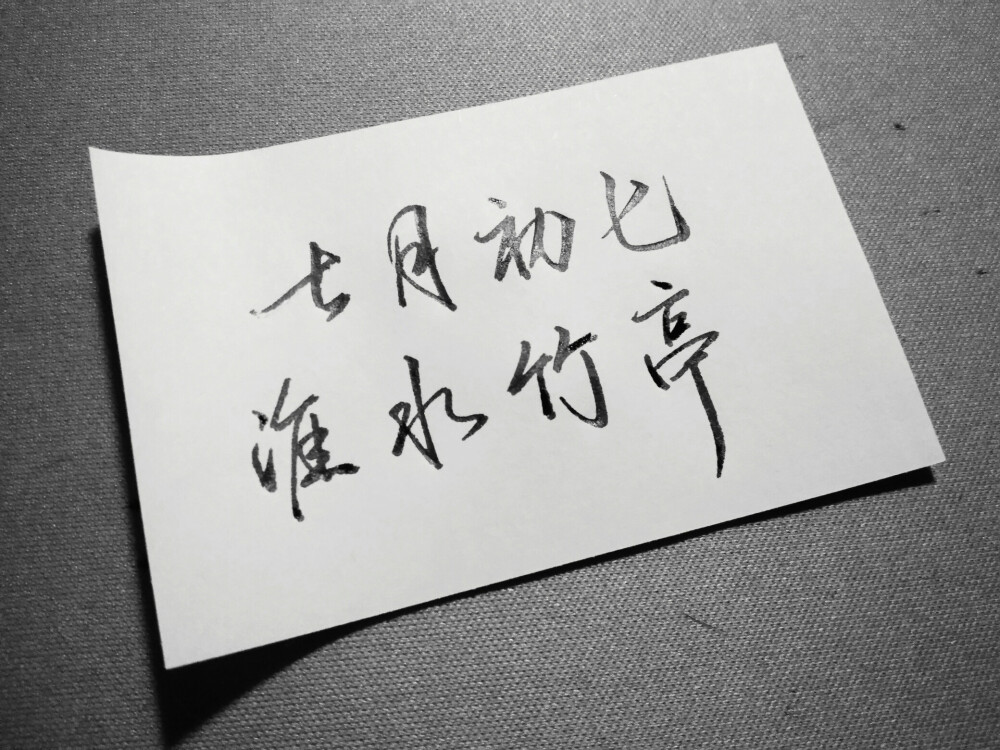 七月初七
淮水竹亭